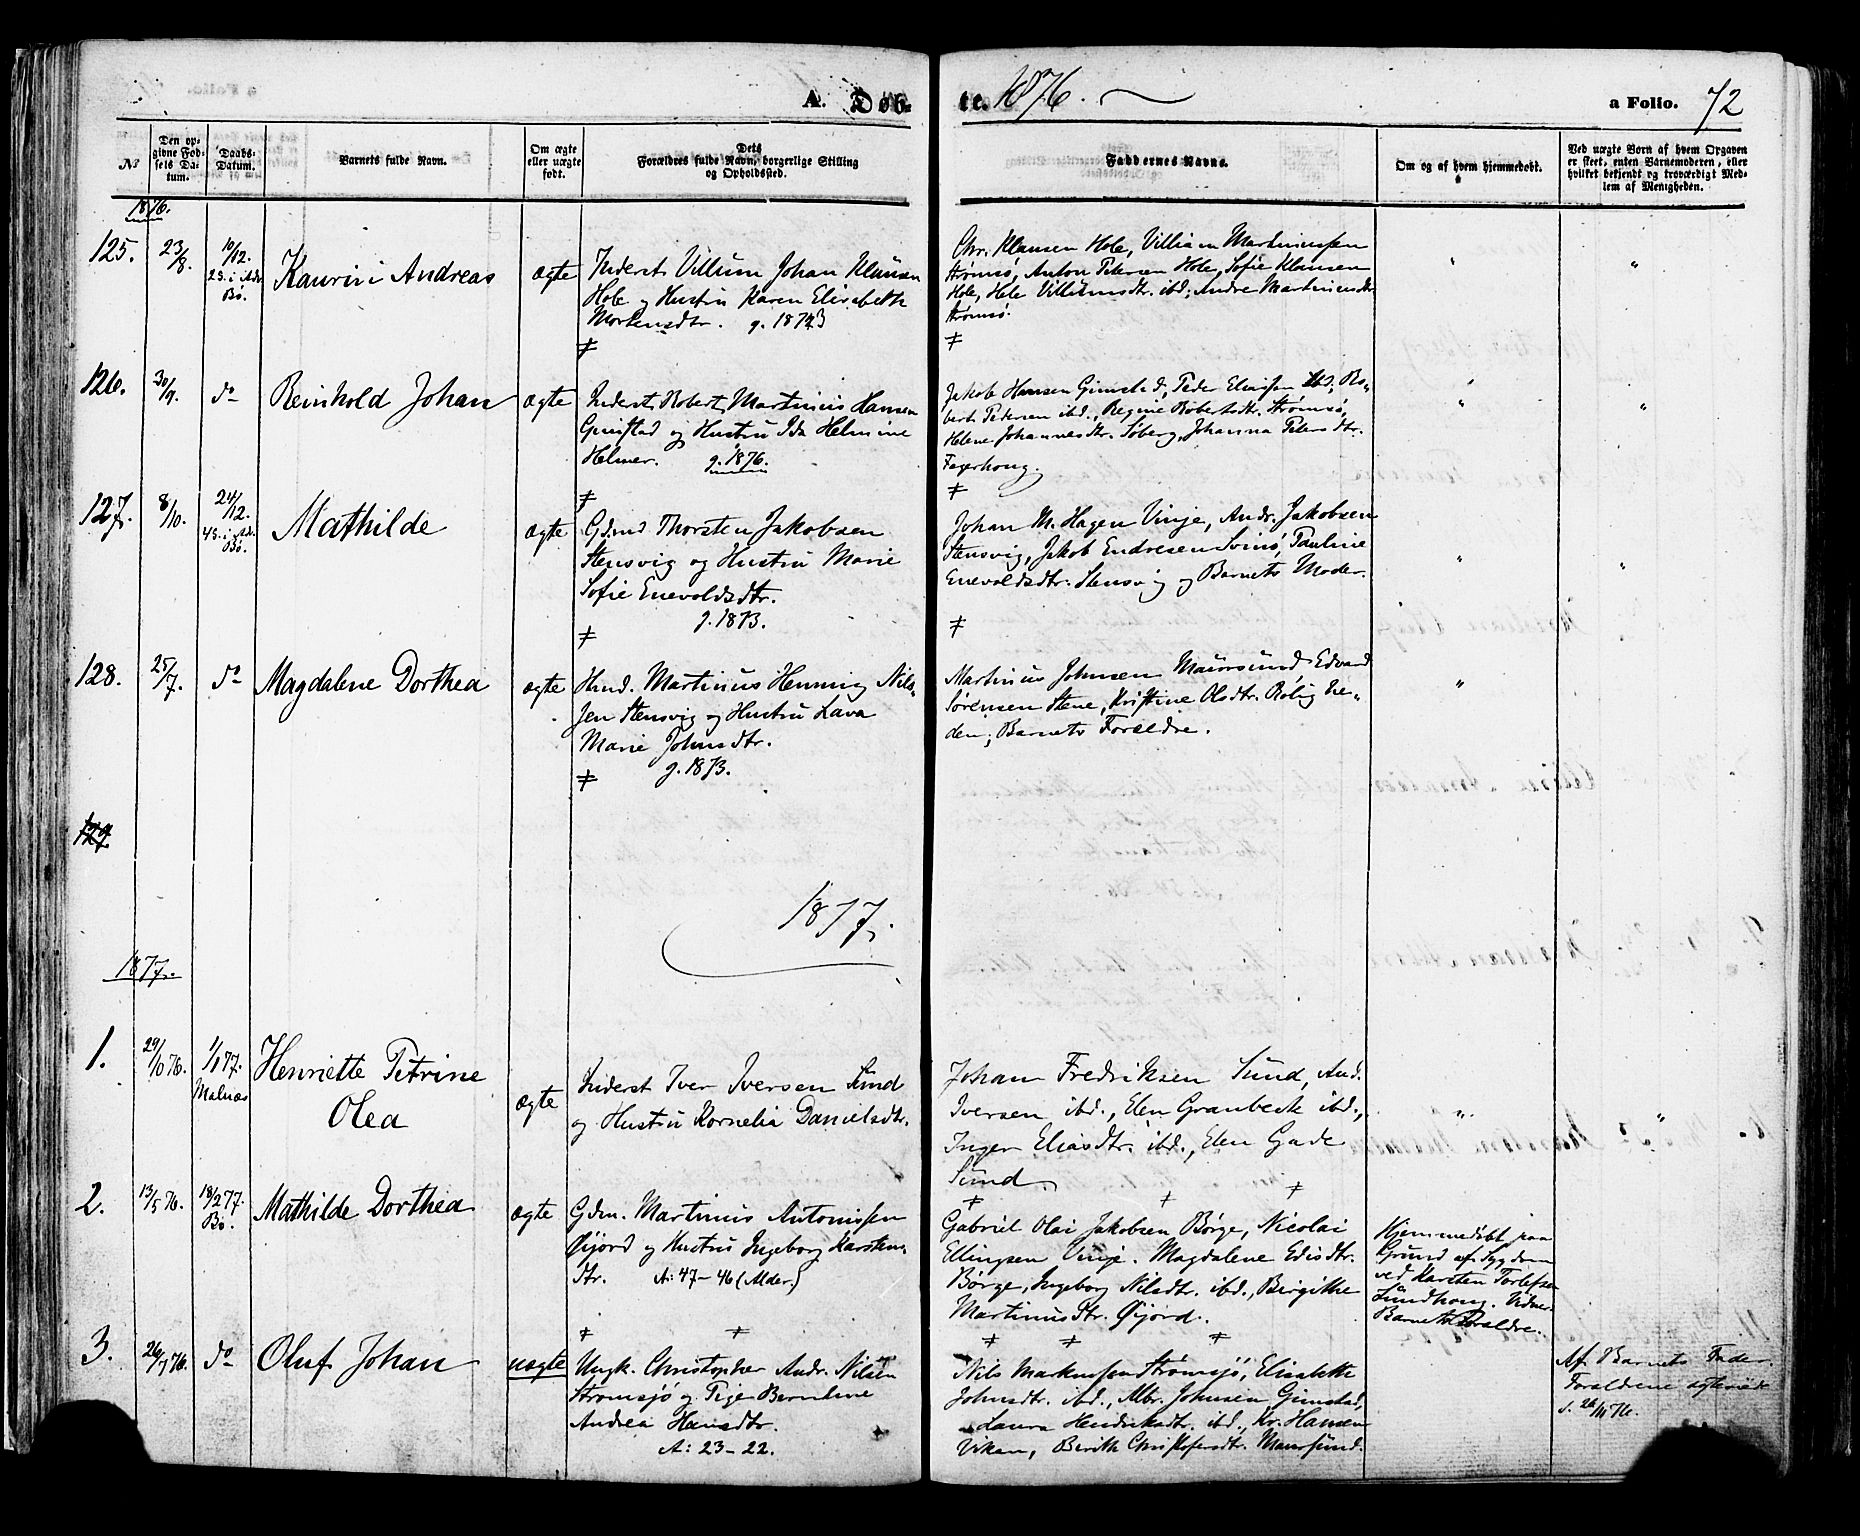 A. Døb-
te. 1876.
a Folio. 72
No
Den op-
givne Fød-
sels Da-
tum.
Daabs-
Datum.
Barnets fulde Navn.
Om ægte
eller uægte
født.
Dets
Forældres fulde Navn, borgerlige Stilling
og Opholdssted.
Faddernes Navne.
Om og af hvem hjemmedøbt.
Ved uægte Børn af hvem Opgaven
er skeet, enten Barnemoderen, eller
hvilket bekjendt og troværdigt Med-
lem af Menigheden.
1876.
125.
23/8.
10/12.
23. i Adv.
Bø.
Andreas
ægte
Inderst Villum Johan Klausen
Hole og Hustru Karen Elisabeth
Mortensdtr. g. 1873
Chr. Klausen Hole, Villiam Martinussen
Strømsø, Anton Petersen Hole, Sofie Klausen
Hole, Hele Villumsdtr. ibd., Andre Martinusdtr.
Strømsø.
126.
30/9.
do
Reinhold Johan
ægte
Inderst Robert Martinius Hansen
Guustad og Hustru Ida Helmine
Helmer. g. 1876.
Jakob Hansen Gimstad, Peder Eliassen ibd., Ro-
bert Pedersen ibd., Regine Robertsdtr. Strømsø,
Helene Johannesdtr. Søberg, Johanna Petersdtr.
Fagerhoug.
127.
8/10.
24/12.
4 S. i Adv.
Bø.
Mathilde
ægte
Gdmd Thorsten Jakobsen
Stensvig og Hustru Marie
Sofie Enevoldsdtr.
g. 1873.
Johan M. Hagen Vinje, Andr. Jakobsen
Stensvig, Jakob Endresen Svinø, Pauline
Enevoldsdtr. Stensvig og Barnets Moder.
128.
25/7.
do
Magdalene Dorthea
ægte
Hmd. Martinus Henning Nils-
sen Stensvig og Hustru Lava
Marie Johnsdtr.
g. 1873.
Martinus Johnsen Maursund, Edvard
Sørensen Stene, Kristine Olsdtr. Rølig He-
den, Barnets Forældre.
129.
1877.
1877.
1.
29/10 76.
1/1 77.
Malnæs
Henriette Petrine
Olea
ægte
Inderst Iver Iversen Sund
og Hustru Kornelia Danielsdtr.
Johan Fredriksen Sund, And.
Iversen ibd., Elen Granbeck ibd.,
Inger Eliasdtr. ibd., Elen Gade
Sund.
2.
13/5 76.
18/2 77.
Bø.
Mathilde Dorthea
ægte
Gdm. Martinus Antonissen
Øijord og Hustru Ingeborg Karsten-
dtr. A: 47-46 (Alder.)
Gabriel Olai Jakobsen Børge, Nicolai
Ellingsen Vinje. Magdalene Edisdtr.
Børge, Ingeborg Nilsdtr. ibd., Birgithe
Martinusdtr. Øijord.
Hjemmedøbt paa
Grund af Sygdom
ved Karsten Torlefsen
Sundhoug. Vidner
Barnets Forældre.
3.
26/7 76.
do
Oluf Johan
uægte
Ungk. Christopher Andr. Nilsen
Strømsjø og Pige Berntine
Andrea Hansdtr.
A: 23-22.
Nils Markussen Strømsjø, Elisabeth
Johnsdtr. ibd., Albr. Johnsen Gimstad,
Laura Hendriksdtr. ibd., Kr. Hansen
Vikan, Berith Christofersdtr. Maursund.
Af Barnets Fader.
Forældrene ægteviede
d. 26/11 76.